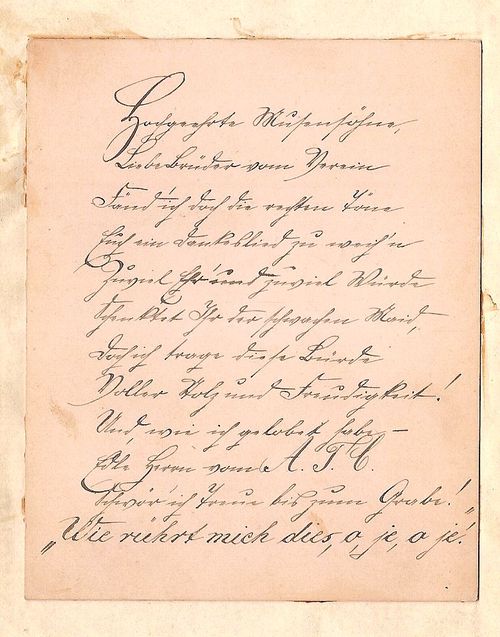 Hochgeehrte Musensöhne,
Liebe Brüder vom Verein
Fänd' ich doch die rechten Töne
Euch ein Dankeslied zu weih'n
Zuviel Ehr' und zuviel Würde
Schenktet Ihr der schwachen Maid,
Doch ich trage diese Bürde
Voller Stolz und Freudigkeit!
Und, wie ich gelobet habe –
Edle Herrn vom A. T. C.
Schwör ich Treue bis zum Grabe!"
„Wie rührt mich dies, o, je, o je!